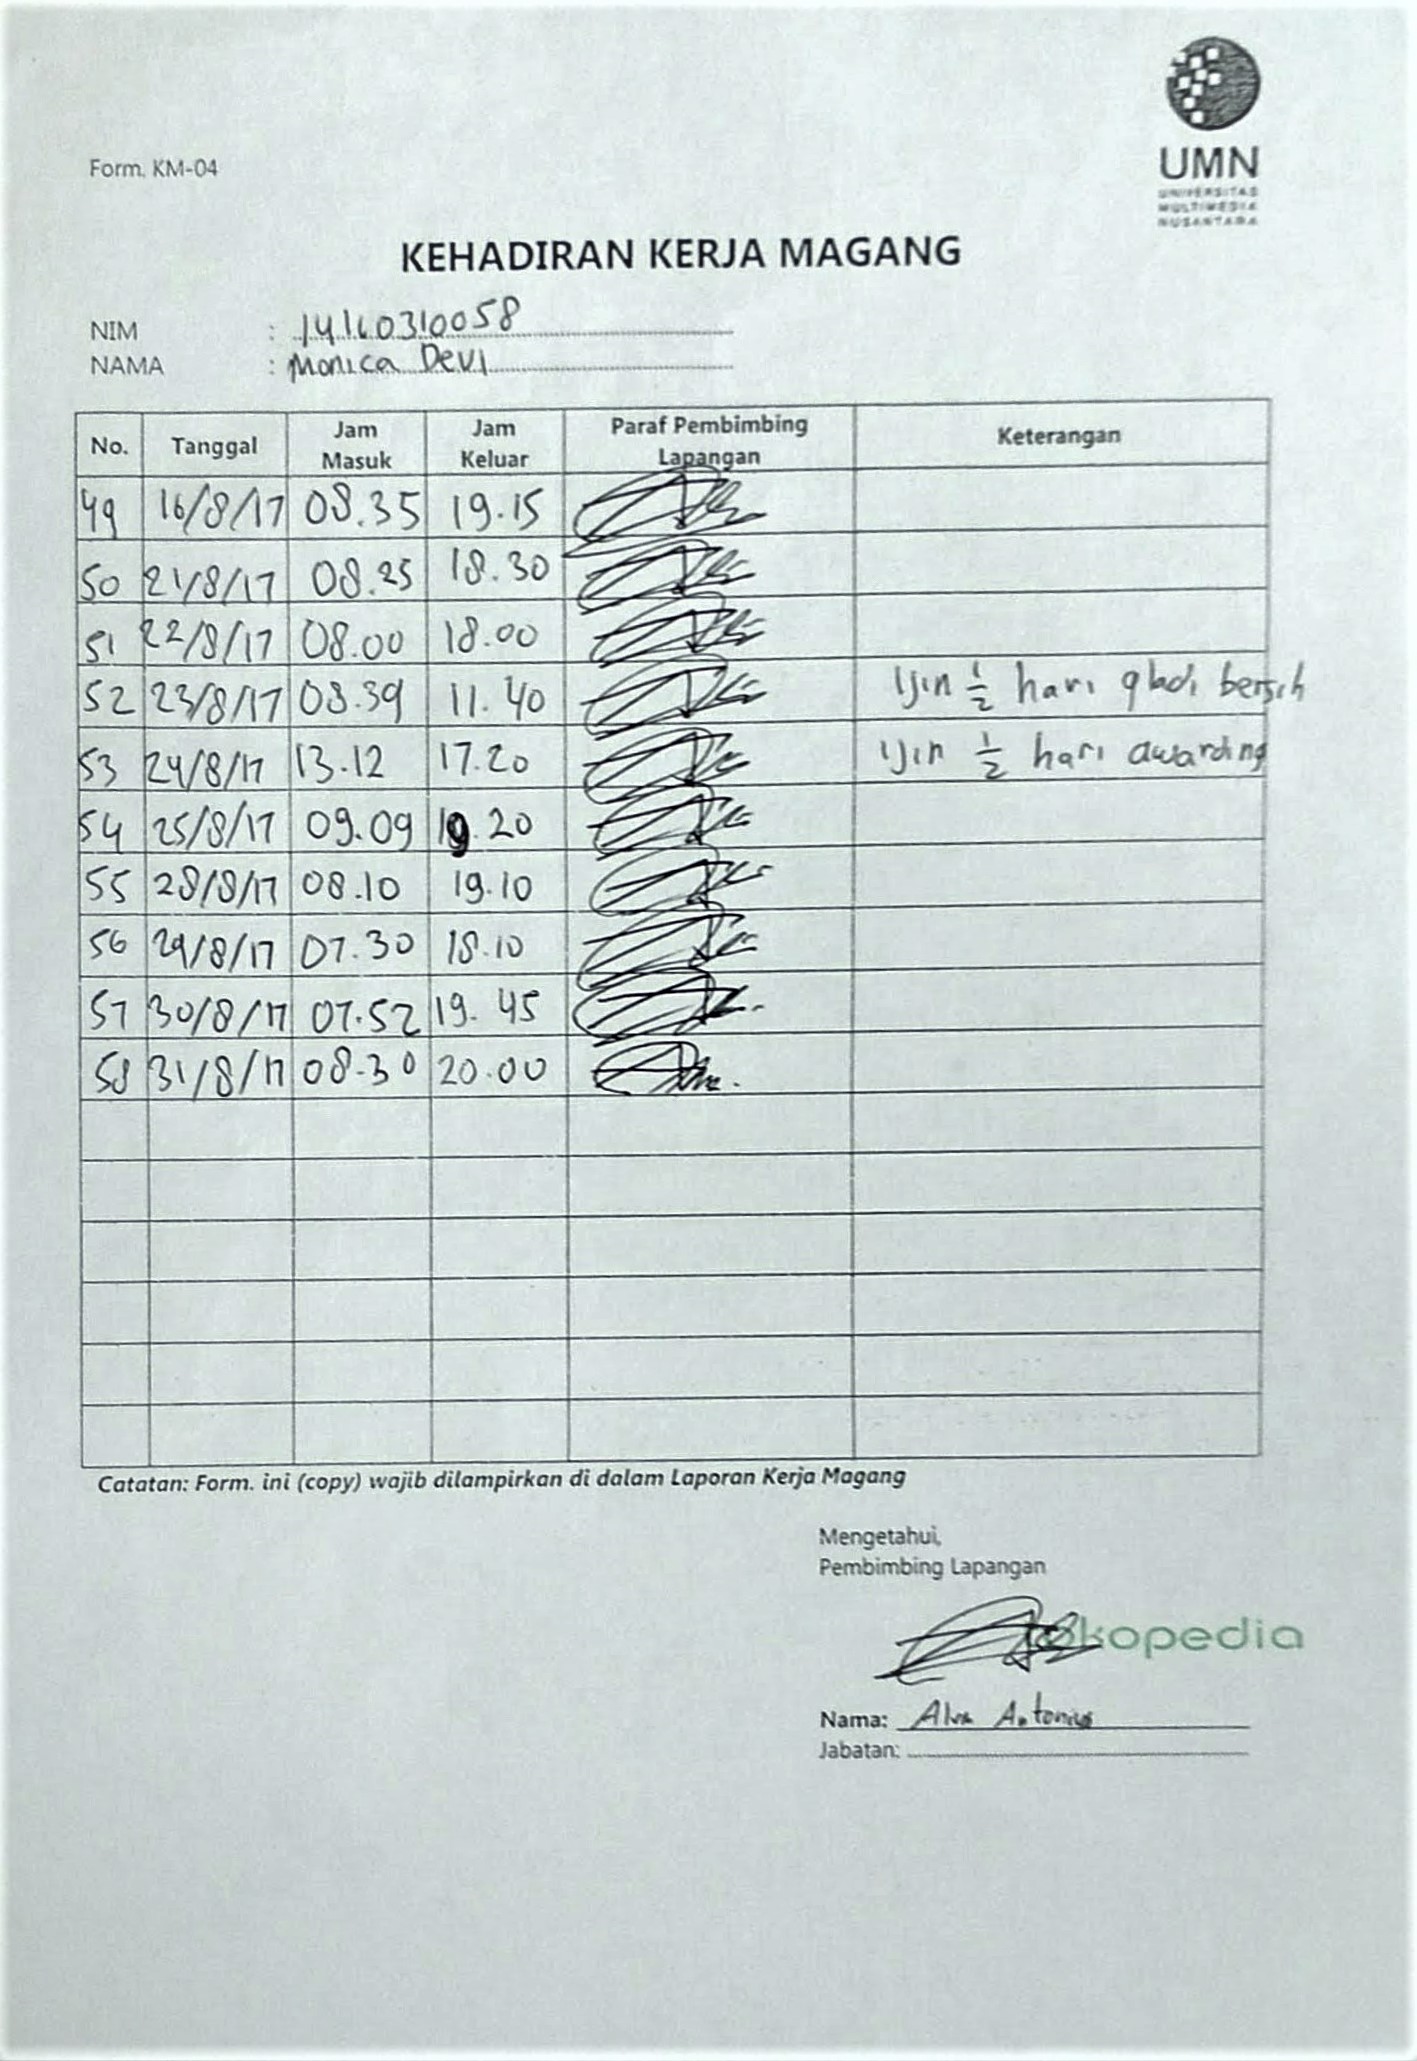 UMN
UNIVERSITAS
MULTIMEDIA
NUSANTARA
Form. KM-04
KEHADIRAN KERJA MAGANG
NIM : 14140310058
NAMA : Monica Devi
No. Tanggal Jam Masuk Jam Keluar Paraf Pembimbing Lapangan Keterangan
49 16/8/17 08.35 19.15
50 21/8/17 08.25 18.30
51 22/8/17 08.00 18.00
52 23/8/17 08.39 11.40 Ijin ½ hari gladi bersih
53 24/8/17 13.12 17.20 Ijin ½ hari awarding
54 25/8/17 09.09 19.20
55 28/8/17 08.10 19.10
56 29/8/17 07.30 18.10
57 30/8/17 07.52 19.45
58 31/8/17 08.30 20.00
Catatan: Form. ini (copy) wajib dilampirkan di dalam Laporan Kerja Magang
Mengetahui,
Pembimbing Lapangan
tokopedia
Nama: Antonius
Jabatan: